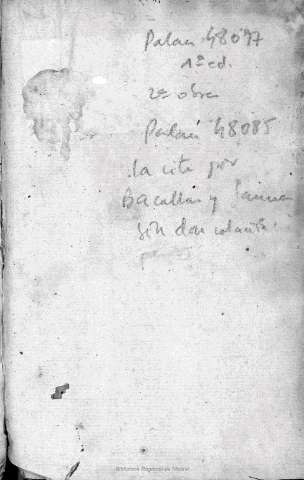 Palau 48077
1ª ed.
2ª obra
Palau 48085
la cita por
Bacallar y Sanna
sin don
Biblioteca Regional de Madrid